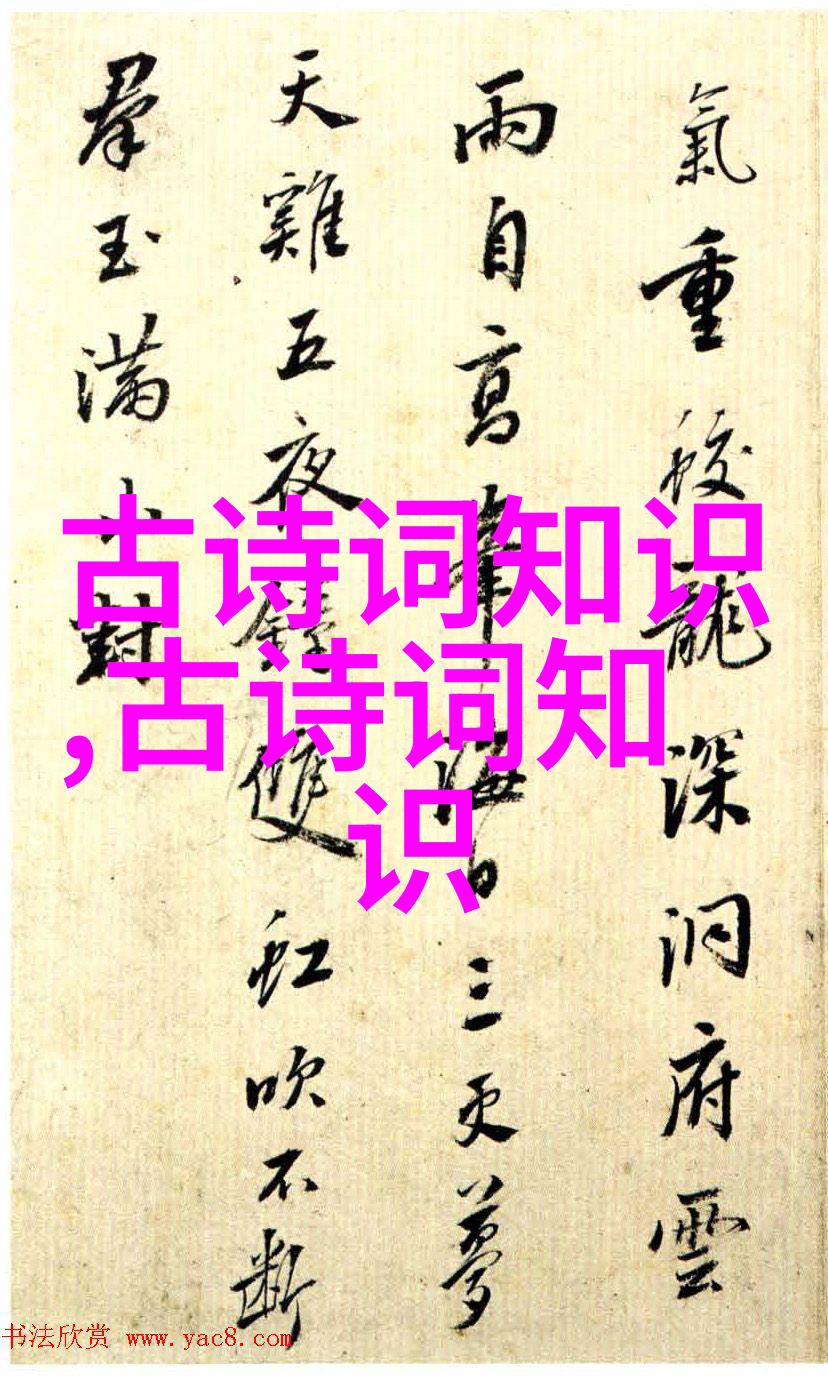 氣重蛟龍深洞府雲
雨自高峯海日三更夢
天雞五夜鐘雙虹吹不斷
羣玉滿山對
古诗词知识
,古诗词知
识
书法欣赏 www.yac8.com